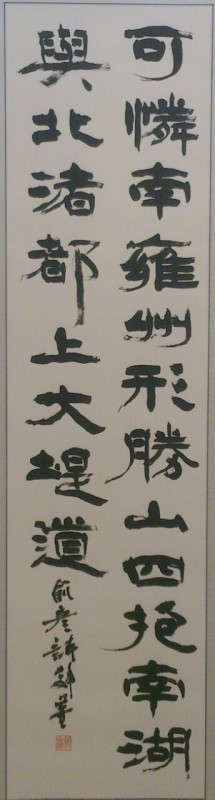 可憐南雍州形勝山四抱南湖
與北渚都上大堤道
俞彥詩